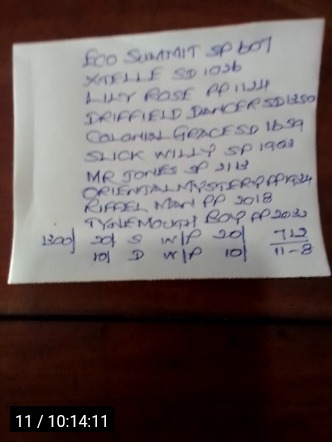 ECO SUMMIT SP 607
XTELLE SD 1026
LILY ROSE PP 1124
DRIFFIELD DANCER SD 1250
COLONIAL GRACE SD 1659
SLICK WILLY SP 1903
MR JONES SP 2113
ORIENTAL MYSTERY PP 1934
RIFFEL MAN PP 2018
TYNEMOUTH BOY PP 2032
1300/ 20/ S W/P 20/ 712
10/ D W/P 10/ 11-8
11 / 10:14:11